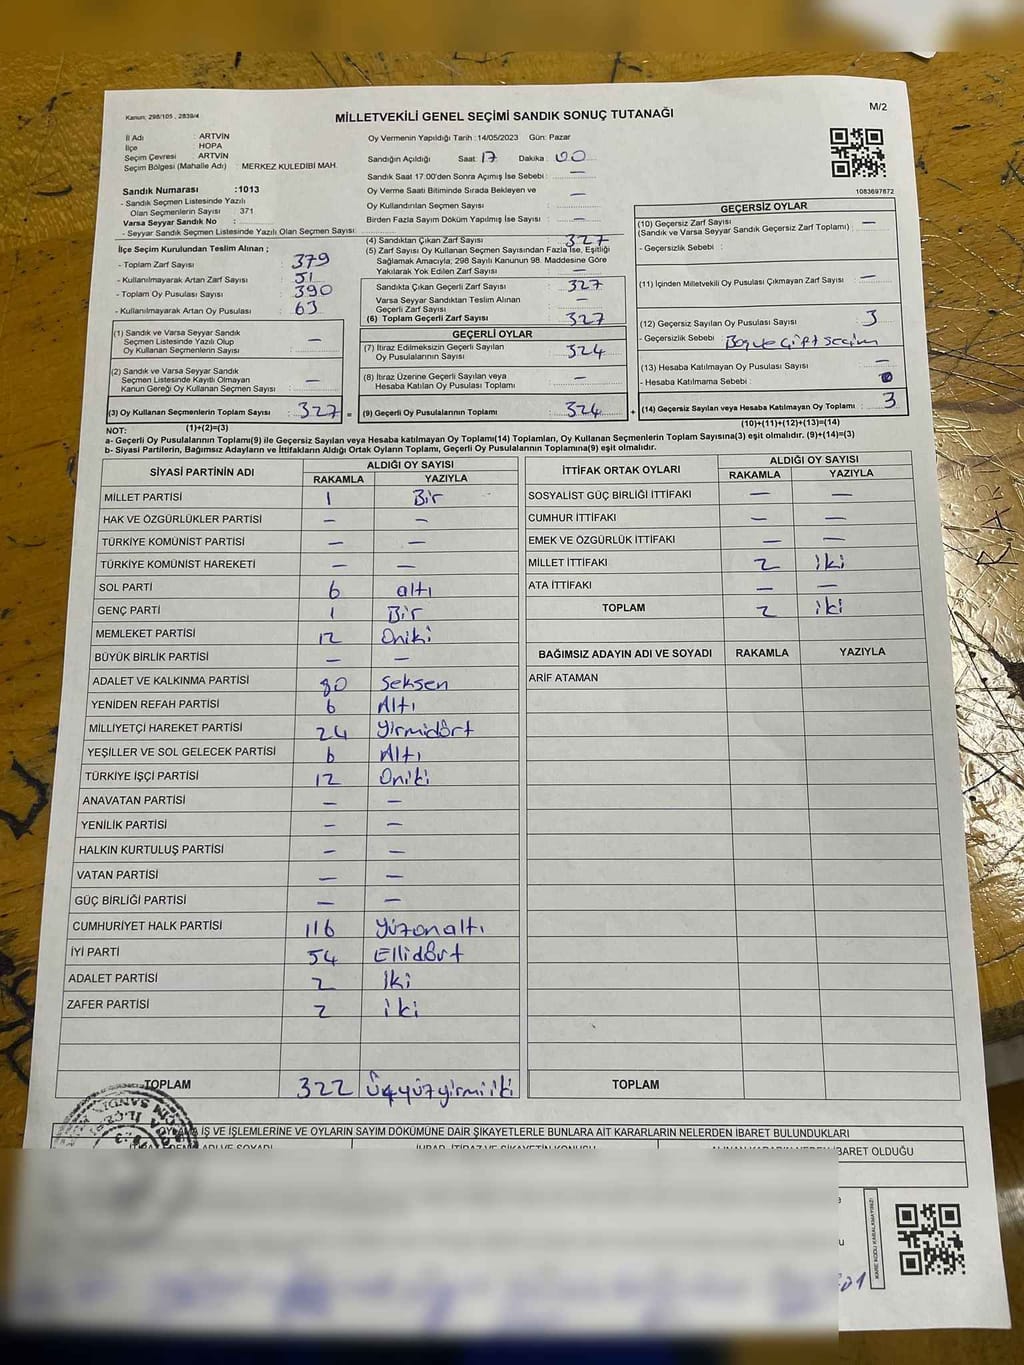 Kanun: 298/105 , 2839/4
MİLLETVEKİLİ GENEL SEÇİMİ SANDIK SONUÇ TUTANAĞI
M/2
İl Adı : ARTVİN
İlçe : HOPA
Seçim Çevresi : ARTVİN
Seçim Bölgesi (Mahalle Adı) : MERKEZ KULEDİBİ MAH.
Sandık Numarası :1013
- Sandık Seçmen Listesinde Yazılı
Olan Seçmenlerin Sayısı : 371
Varsa Seyyar Sandık No :
- Seyyar Sandık Seçmen Listesinde Yazılı Olan Seçmen Sayısı:
Oy Vermenin Yapıldığı Tarih : 14/05/2023 Gün: Pazar
Sandığın Açıldığı Saat: 17 Dakika : 00
Sandık Saat 17.00'den Sonra Açımış İse Sebebi : —
Oy Verme Saati Bitiminde Sırada Bekleyen ve
Oy Kullandırılan Seçmen Sayısı : —
Birden Fazla Sayım Döküm Yapılmış İse Sayısı : —
1083697872
İlçe Seçim Kurulundan Teslim Alınan ;
- Toplam Zarf Sayısı : 379
- Kullanılmayarak Artan Zarf Sayısı : 51
- Toplam Oy Pusulası Sayısı : 390
- Kullanılmayarak Artan Oy Pusulası : 63
(1) Sandık ve Varsa Seyyar Sandık
Seçmen Listesinde Yazılı Olup
Oy Kullanan Seçmenlerin Sayısı : —
(2) Sandık ve Varsa Seyyar Sandık
Seçmen Listesinde Kayıtlı Olmayan
Kanun Gereği Oy Kullanan Seçmen Sayısı : —
(3) Oy Kullanan Seçmenlerin Toplam Sayısı : 327 =
(1)+(2)=(3)
(4) Sandıktan Çıkan Zarf Sayısı : 327
(5) Zarf Sayısı Oy Kullanan Seçmen Sayısından Fazla İse, Eşitliği
Sağlamak Amacıyla; 298 Sayılı Kanunun 98. Maddesine Göre
Yakılarak Yok Edilen Zarf Sayısı : —
Sandıkta Çıkan Geçerli Zarf Sayısı : 327
Varsa Seyyar Sandıktan Teslim Alınan
Geçerli Zarf Sayısı : —
(6) Toplam Geçerli Zarf Sayısı : 327
GEÇERLİ OYLAR
(7) İtiraz Edilmeksizin Geçerli Sayılan
Oy Pusulalarının Sayısı : 324
(8) İtiraz Üzerine Geçerli Sayılan veya
Hesaba Katılan Oy Pusulası Toplamı : —
(9) Geçerli Oy Pusulalarının Toplamı : 324 +
GEÇERSİZ OYLAR
(10) Geçersiz Zarf Sayısı : —
(Sandık ve Varsa Seyyar Sandık Geçersiz Zarf Toplamı)
- Geçersizlik Sebebi :
(11) İçinden Milletvekili Oy Pusulası Çıkmayan Zarf Sayısı : —
(12) Geçersiz Sayılan Oy Pusulası Sayısı : 3
- Geçersizlik Sebebi : Boş ve çift seçim
(13) Hesaba Katılmayan Oy Pusulası Sayısı : —
- Hesaba Katılmama Sebebi :
(14) Geçersiz Sayılan veya Hesaba Katılmayan Oy Toplamı : 3
(10)+(11)+(12)+(13)=(14)
NOT:
a- Geçerli Oy Pusulalarının Toplamı(9) ile Geçersiz Sayılan veya Hesaba katılmayan Oy Toplamı(14) Toplamları, Oy Kullanan Seçmenlerin Toplam Sayısına(3) eşit olmalıdır. (9)+(14)=(3)
b- Siyasi Partilerin, Bağımsız Adayların ve İttifakların Aldığı Ortak Oyların Toplamı, Geçerli Oy Pusulalarının Toplamına(9) eşit olmalıdır.
SİYASİ PARTİNİN ADI ALDIĞI OY SAYISI
RAKAMLA YAZIYLA
MİLLET PARTİSİ 1 Bir
HAK VE ÖZGÜRLÜKLER PARTİSİ — —
TÜRKİYE KOMÜNİST PARTİSİ — —
TÜRKİYE KOMÜNİST HAREKETİ — —
SOL PARTİ 6 altı
GENÇ PARTİ 1 Bir
MEMLEKET PARTİSİ 12 Oniki
BÜYÜK BİRLİK PARTİSİ — —
ADALET VE KALKINMA PARTİSİ 80 Seksen
YENİDEN REFAH PARTİSİ 6 Altı
MİLLİYETÇİ HAREKET PARTİSİ 24 Yirmidört
YEŞİLLER VE SOL GELECEK PARTİSİ 6 Altı
TÜRKİYE İŞÇİ PARTİSİ 12 Oniki
ANAVATAN PARTİSİ — —
YENİLİK PARTİSİ — —
HALKIN KURTULUŞ PARTİSİ — —
VATAN PARTİSİ — —
GÜÇ BİRLİĞİ PARTİSİ — —
CUMHURİYET HALK PARTİSİ 116 Yüzonaltı
İYİ PARTİ 54 Ellidört
ADALET PARTİSİ 2 İki
ZAFER PARTİSİ 2 iki
TOPLAM 322 Üçyüzyirmiiki
İTTİFAK ORTAK OYLARI ALDIĞI OY SAYISI
RAKAMLA YAZIYLA
SOSYALİST GÜÇ BİRLİĞİ İTTİFAKI — —
CUMHUR İTTİFAKI — —
EMEK VE ÖZGÜRLÜK İTTİFAKI — —
MİLLET İTTİFAKI 2 iki
ATA İTTİFAKI — —
TOPLAM 2 iki
BAĞIMSIZ ADAYIN ADI VE SOYADI RAKAMLA YAZIYLA
ARİF ATAMAN
TOPLAM
İŞ VE İŞLEMLERİNE VE OYLARIN SAYIM DÖKÜMÜNE DAİR ŞİKAYETLERLE BUNLARA AİT KARARLARIN NELERDEN İBARET BULUNDUKLARI
İBARET OLDUĞU
KARE KODU KARALAMAYINIZ!